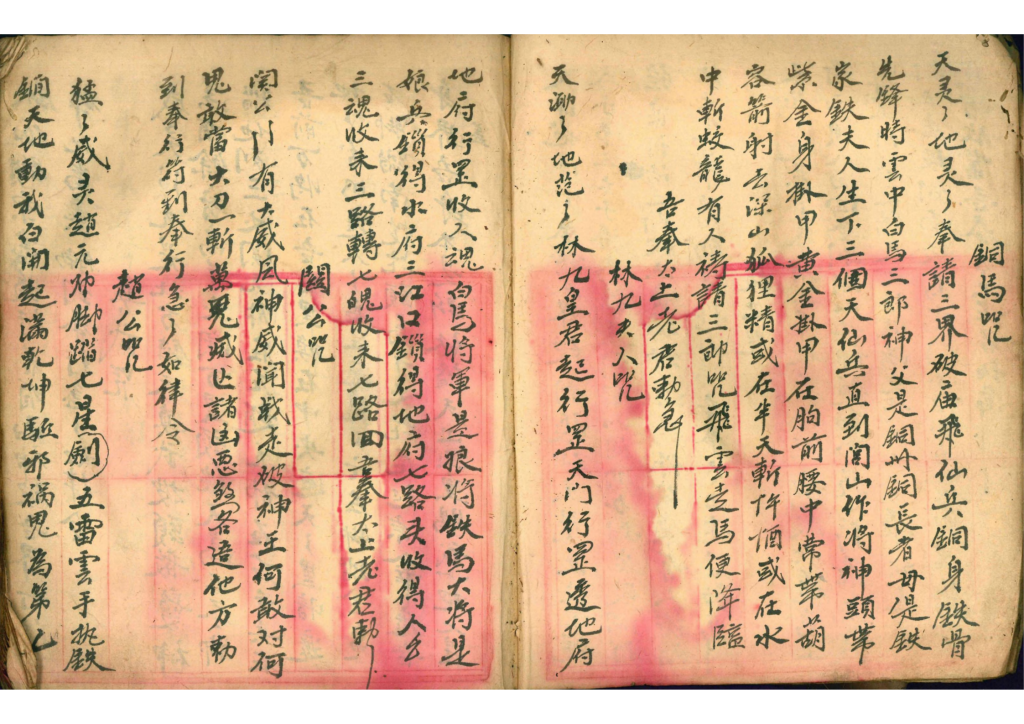 銅馬咒
天灵〻地灵〻奉請三界破庙飛仙兵銅身鉄骨
先鋒時雲中白馬三郎神父是銅州銅長者母是鉄
家鉄夫人生下三個天仙兵直到閭山作將神頭帶
紫金身掛甲黄金掛甲在胸前腰中常带葫
容箭射去深山狐狸精或在半天斬 或在水
中斬蛟龍有人禱請三郎咒飛雲走馬便降臨
吾奉太上老君勅急
林九夫人咒
天 〻地 〻林九皇君起行罡天门行罡透地府
地府行罡收人魂白馬将軍是狼将鉄馬大将是
娘兵鎖得水府三江口鎖得地府七路头收得人
三魂收来三路轉七魄收来七路回 奉太上老君勅
關公咒
関公〻有大威風神威開战走破神王何敢对何
鬼敢當大刀一斬萬鬼滅亡諸凶悪煞各逵他方勅
到奉行符到奉行急〻如律令
趙公咒
猛〻威灵趙元帅脚蹈七星劍五雷雲手执鉄
鐧天地動我召開起滿乾坤駈邪祸鬼為第乙